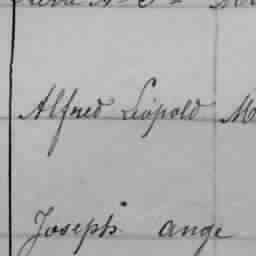 Alfred Léopold M
Joseph ange